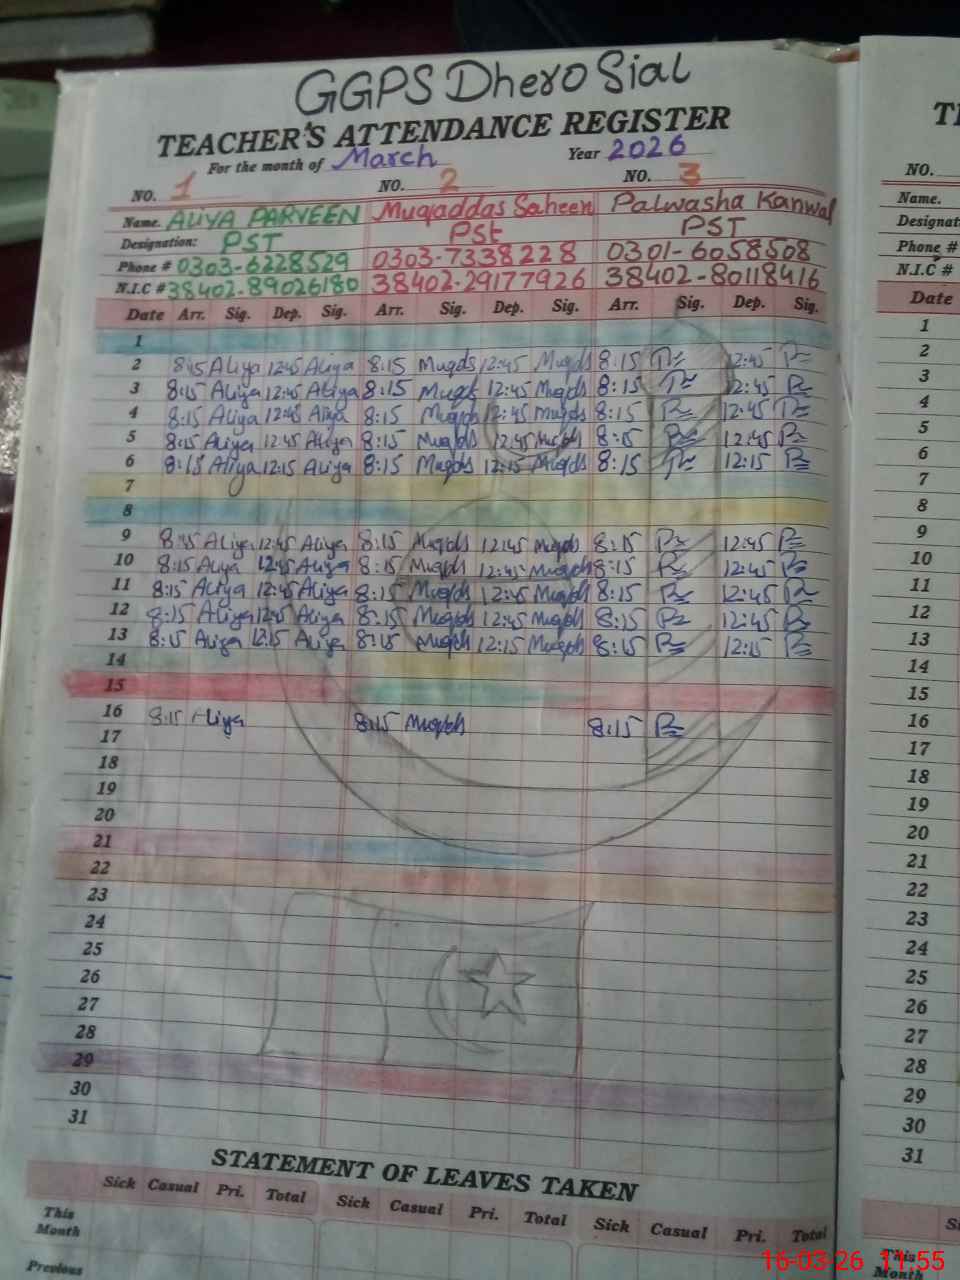 GGPS Dhero Sial
TEACHER'S ATTENDANCE REGISTER
For the month of March Year 2026
NO. 1 NO. 2 NO. 3 NO.
Name. ALIYA PARVEEN Muqaddas Saheen Palwasha Kanwal Name.
Designation: PST PSt PST
Phone # 0303-6228529 0303-7338228 0301-6058508 Phone #
N.I.C # 38402-89026180 38402-29177926 38402-80118416 N.I.C #
Date Arr. Sig. Dep. Sig. Arr. Sig. Dep. Sig. Arr. Sig. Dep. Sig. Date
1 1
2 8:15 Aliya 12:45 Aliya 8:15 Muqds 12:45 Muqds 8:15 12:45 2
3 8:15 Aliya 12:45 Aliya 8:15 Muqds 12:45 Muqds 8:15 12:45 3
4 8:15 Aliya 12:45 Aliya 8:15 Muqds 12:45 Muqds 8:15 12:45 4
5 8:15 Aliya 12:45 Aliya 8:15 Muqds 12:45 Muqds 8:15 12:45 5
6 8:15 Aliya 12:15 Aliya 8:15 Muqds 12:15 Muqds 8:15 12:15 6
7 7
8 8
9 8:15 Aliya 12:45 Aliya 8:15 Muqds 12:45 Muqds 8:15 12:45 9
10 8:15 Aliya 12:45 Aliya 8:15 Muqds 12:45 Muqds 8:15 12:45 10
11 8:15 Aliya 12:45 Aliya 8:15 Muqds 12:45 Muqds 8:15 12:45 11
12 8:15 Aliya 12:45 Aliya 8:15 Muqds 12:45 Muqds 8:15 12:45 12
13 8:15 Aliya 12:15 Aliya 8:15 Muqds 12:15 Muqds 8:15 12:15 13
14 14
15 15
16 8:15 Aliya 8:15 Muqds 8:15 16
17 17
18 18
19 19
20 20
21 21
22 22
23 23
24 24
25 25
26 26
27 27
28 28
29 29
30 30
31 31
STATEMENT OF LEAVES TAKEN
Sick Casual Pri. Total Sick Casual Pri. Total Sick Casual Pri. Total
This Month This Month
Previous
16-03-26 11:55